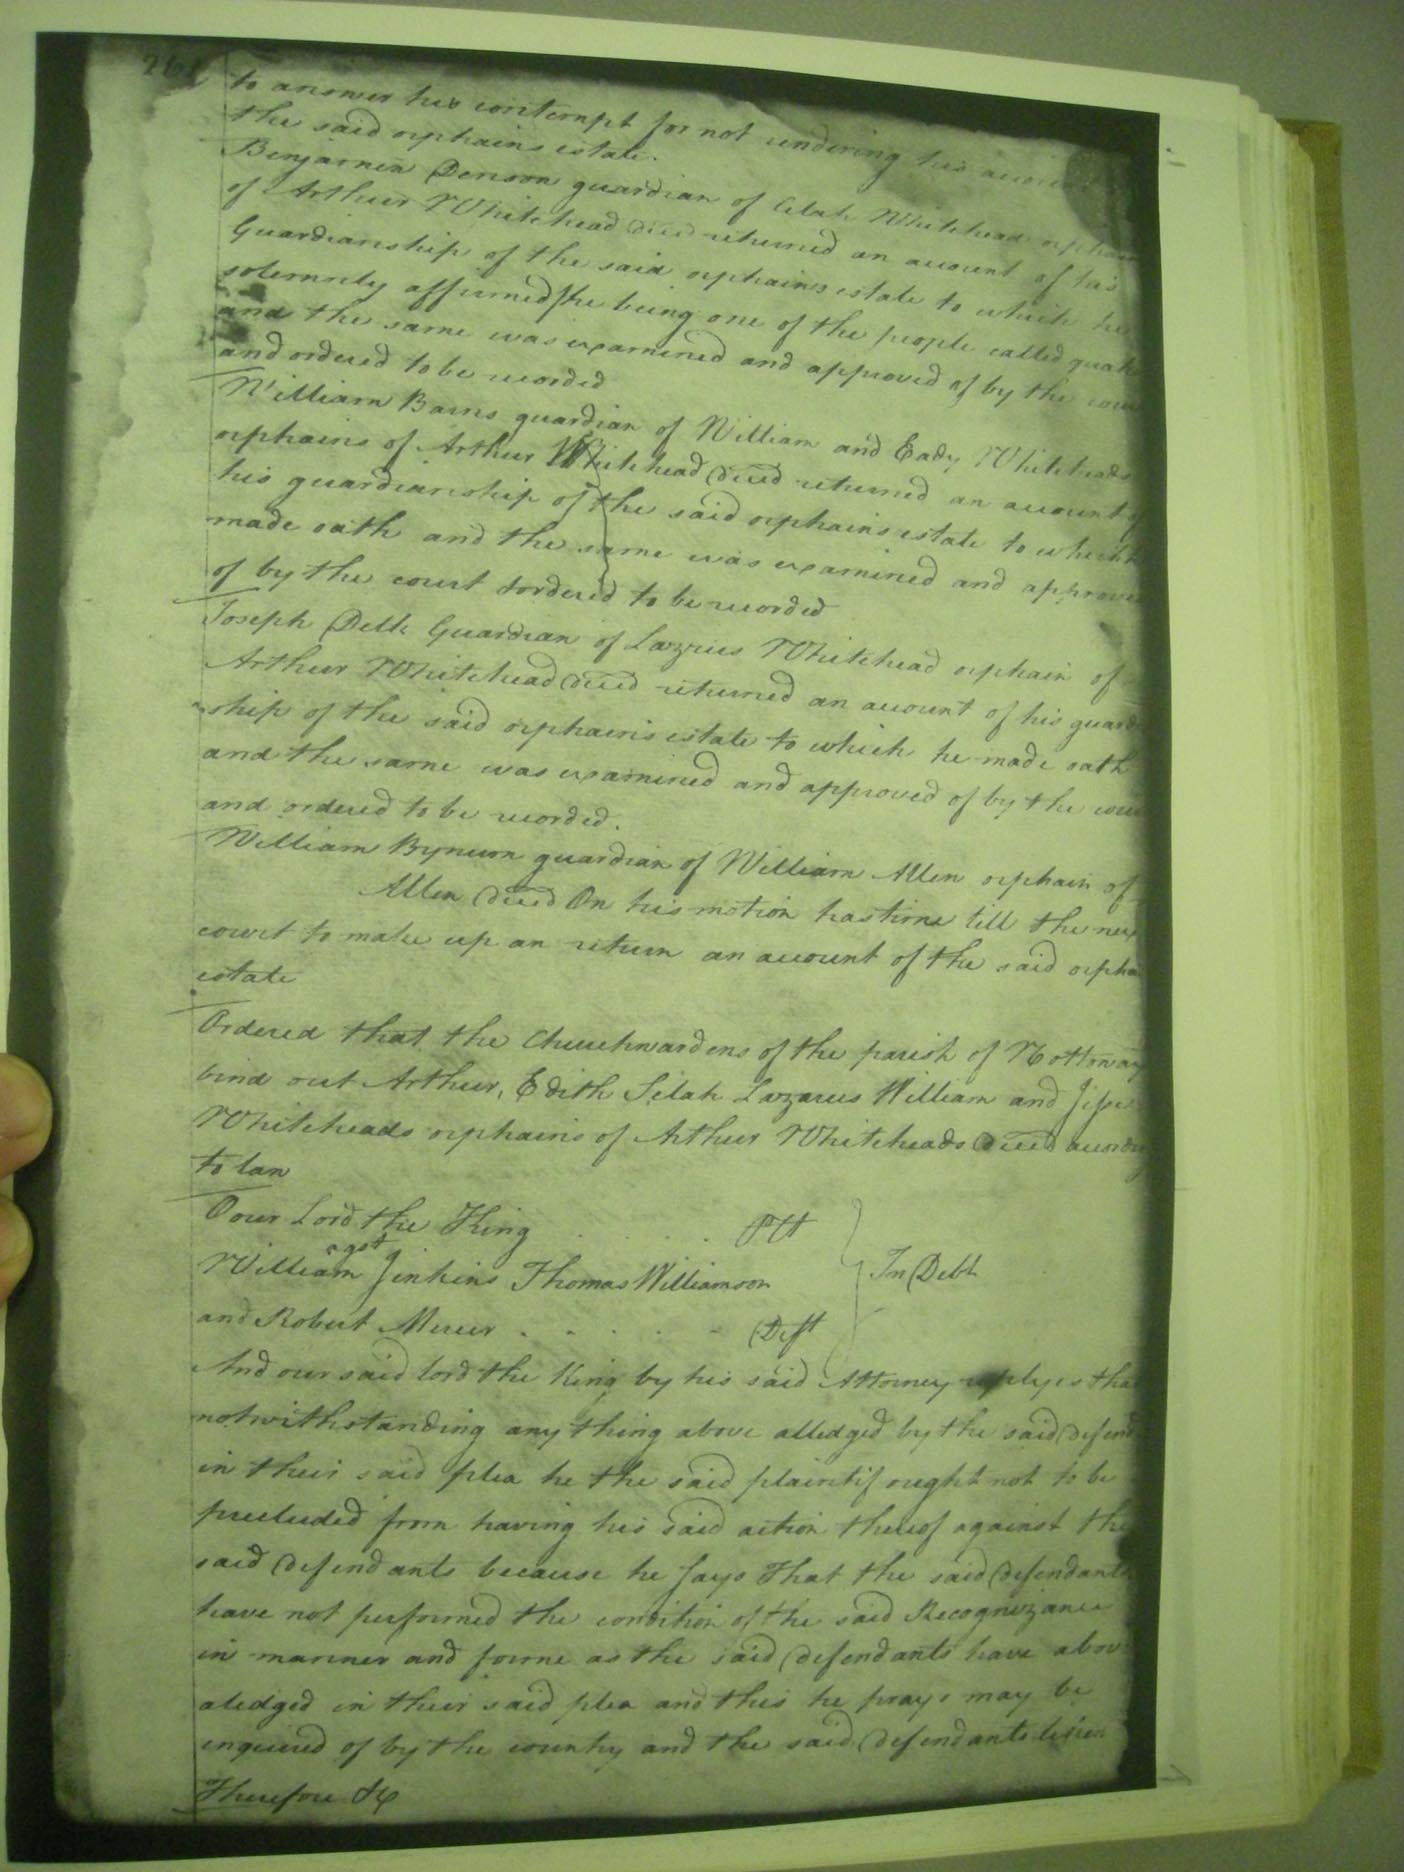 to answer his contempt for not rendering his account
the said orphains estate.
Benjamin Denson guardian of Celah Whitehead orphain
of Arthur Whitehead decd returned an account of his
Guardianship of the said orphains estate to which he
solemnly affirmed he being one of the people called quak
and the same was examined and approved of by the cour
and ordered to be recorded
William Barns guardian of William and Eady Whiteheads
orphains of Arthur Whitehead decd returned an account of
his guardianship of the said orphains estate to which
made oath and the same was examined and approve
of by the court & ordered to be recorded
Joseph Delk Guardian of Lazrus Whitehead orphain of
Arthur Whitehead decd returned an account of his guard
ship of the said orphains estate to which he made oath
and the same was examined and approved of by the cour
and ordered to be recorded.
William Bynum guardian of William Allen orphain of
Allen decd On his motion has time till the nex
court to make up an return an account of the said orpha
estate
Ordered that the Churchwardens of the parish of Nottoway
bind out Arthur, Edith Selah Lazarus William and Jesse
Whiteheads orphains of Arthur Whiteheads decd accordg
to law
Our Lord the King . . . . . Plt
agst
William Jenkins Thomas Williamson
In Debt
and Robert Mercer . . . . . Deft
And our said lord the King by his said Attorney replyes tha
notwithstanding any thing above alledged by the said defend
in their said plea he the said plaintif ought not to be
precluded from having his said action thereof against the
said defendants because he says That the said defendants
have not performed the condition of the said Recognizance
in manner and forme as the said defendants have abov
aledged in their said plea and this he prays may be
enquired of by the country and the said defendants likew
Therefore &c